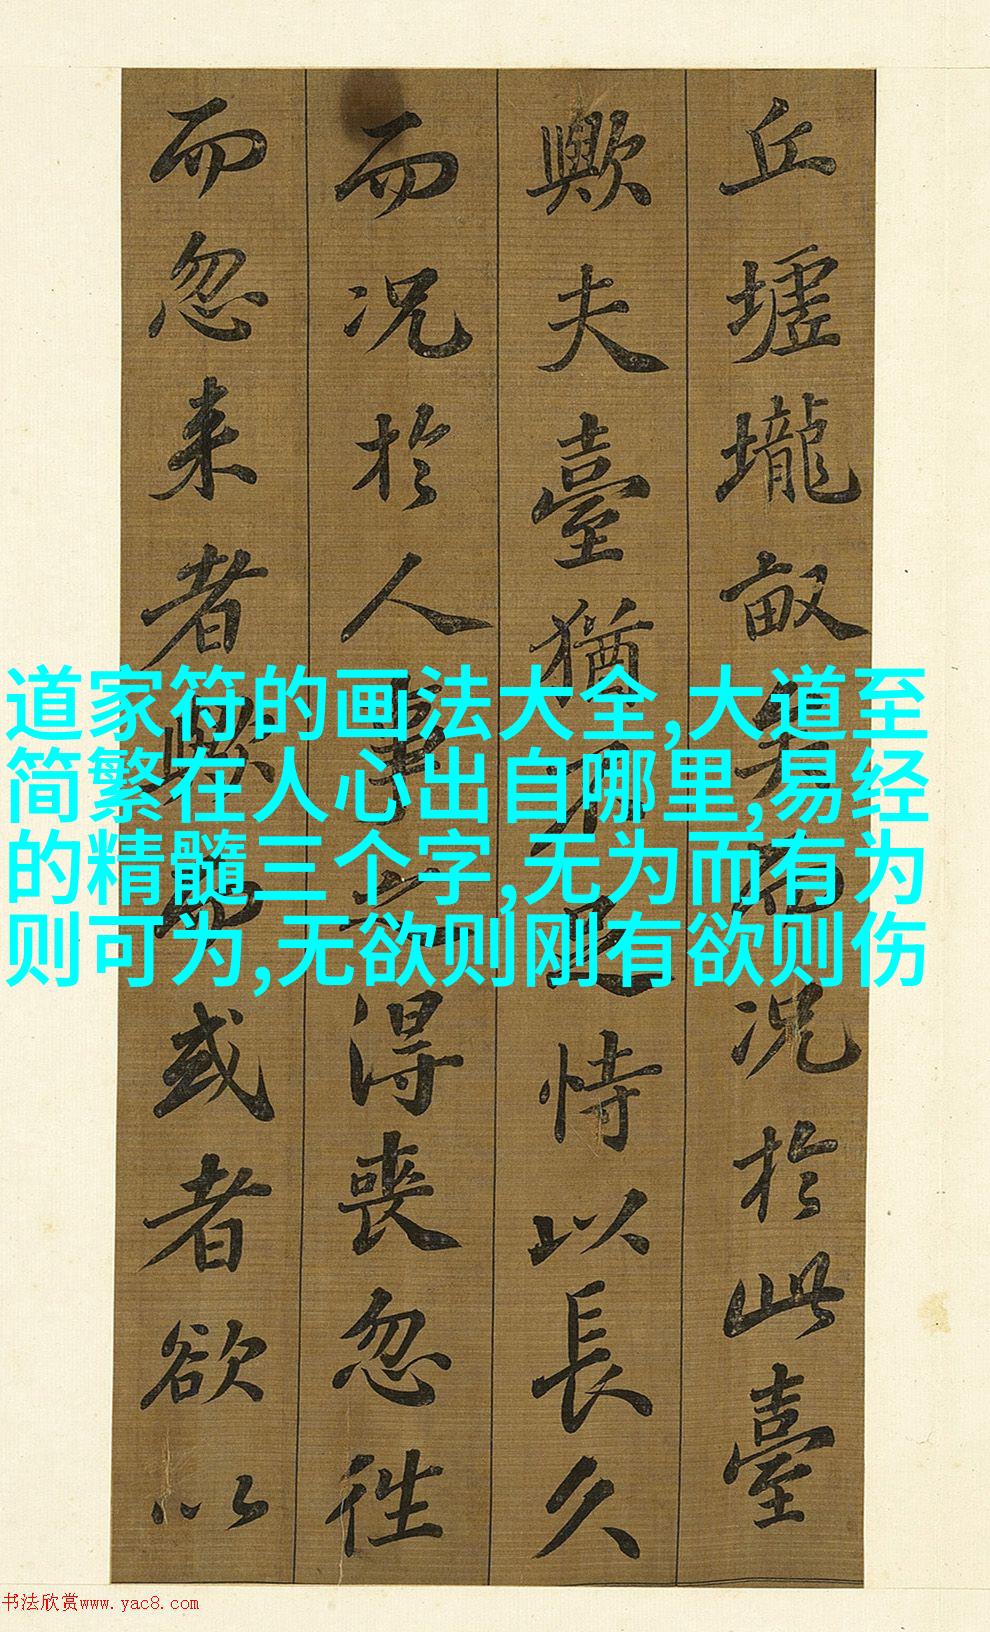 丘墟壠畝矣而况於此臺
歟夫臺猶不足恃以長久
而况於人事之得喪忽徃
而忽来者歟而或者欲以
道家符的画法大全,大道至
简繁在人心出自哪里,易经
的精髓三个字,无为而有为
则可为,无欲则刚有欲则伤
书法欣赏www.yac8.com